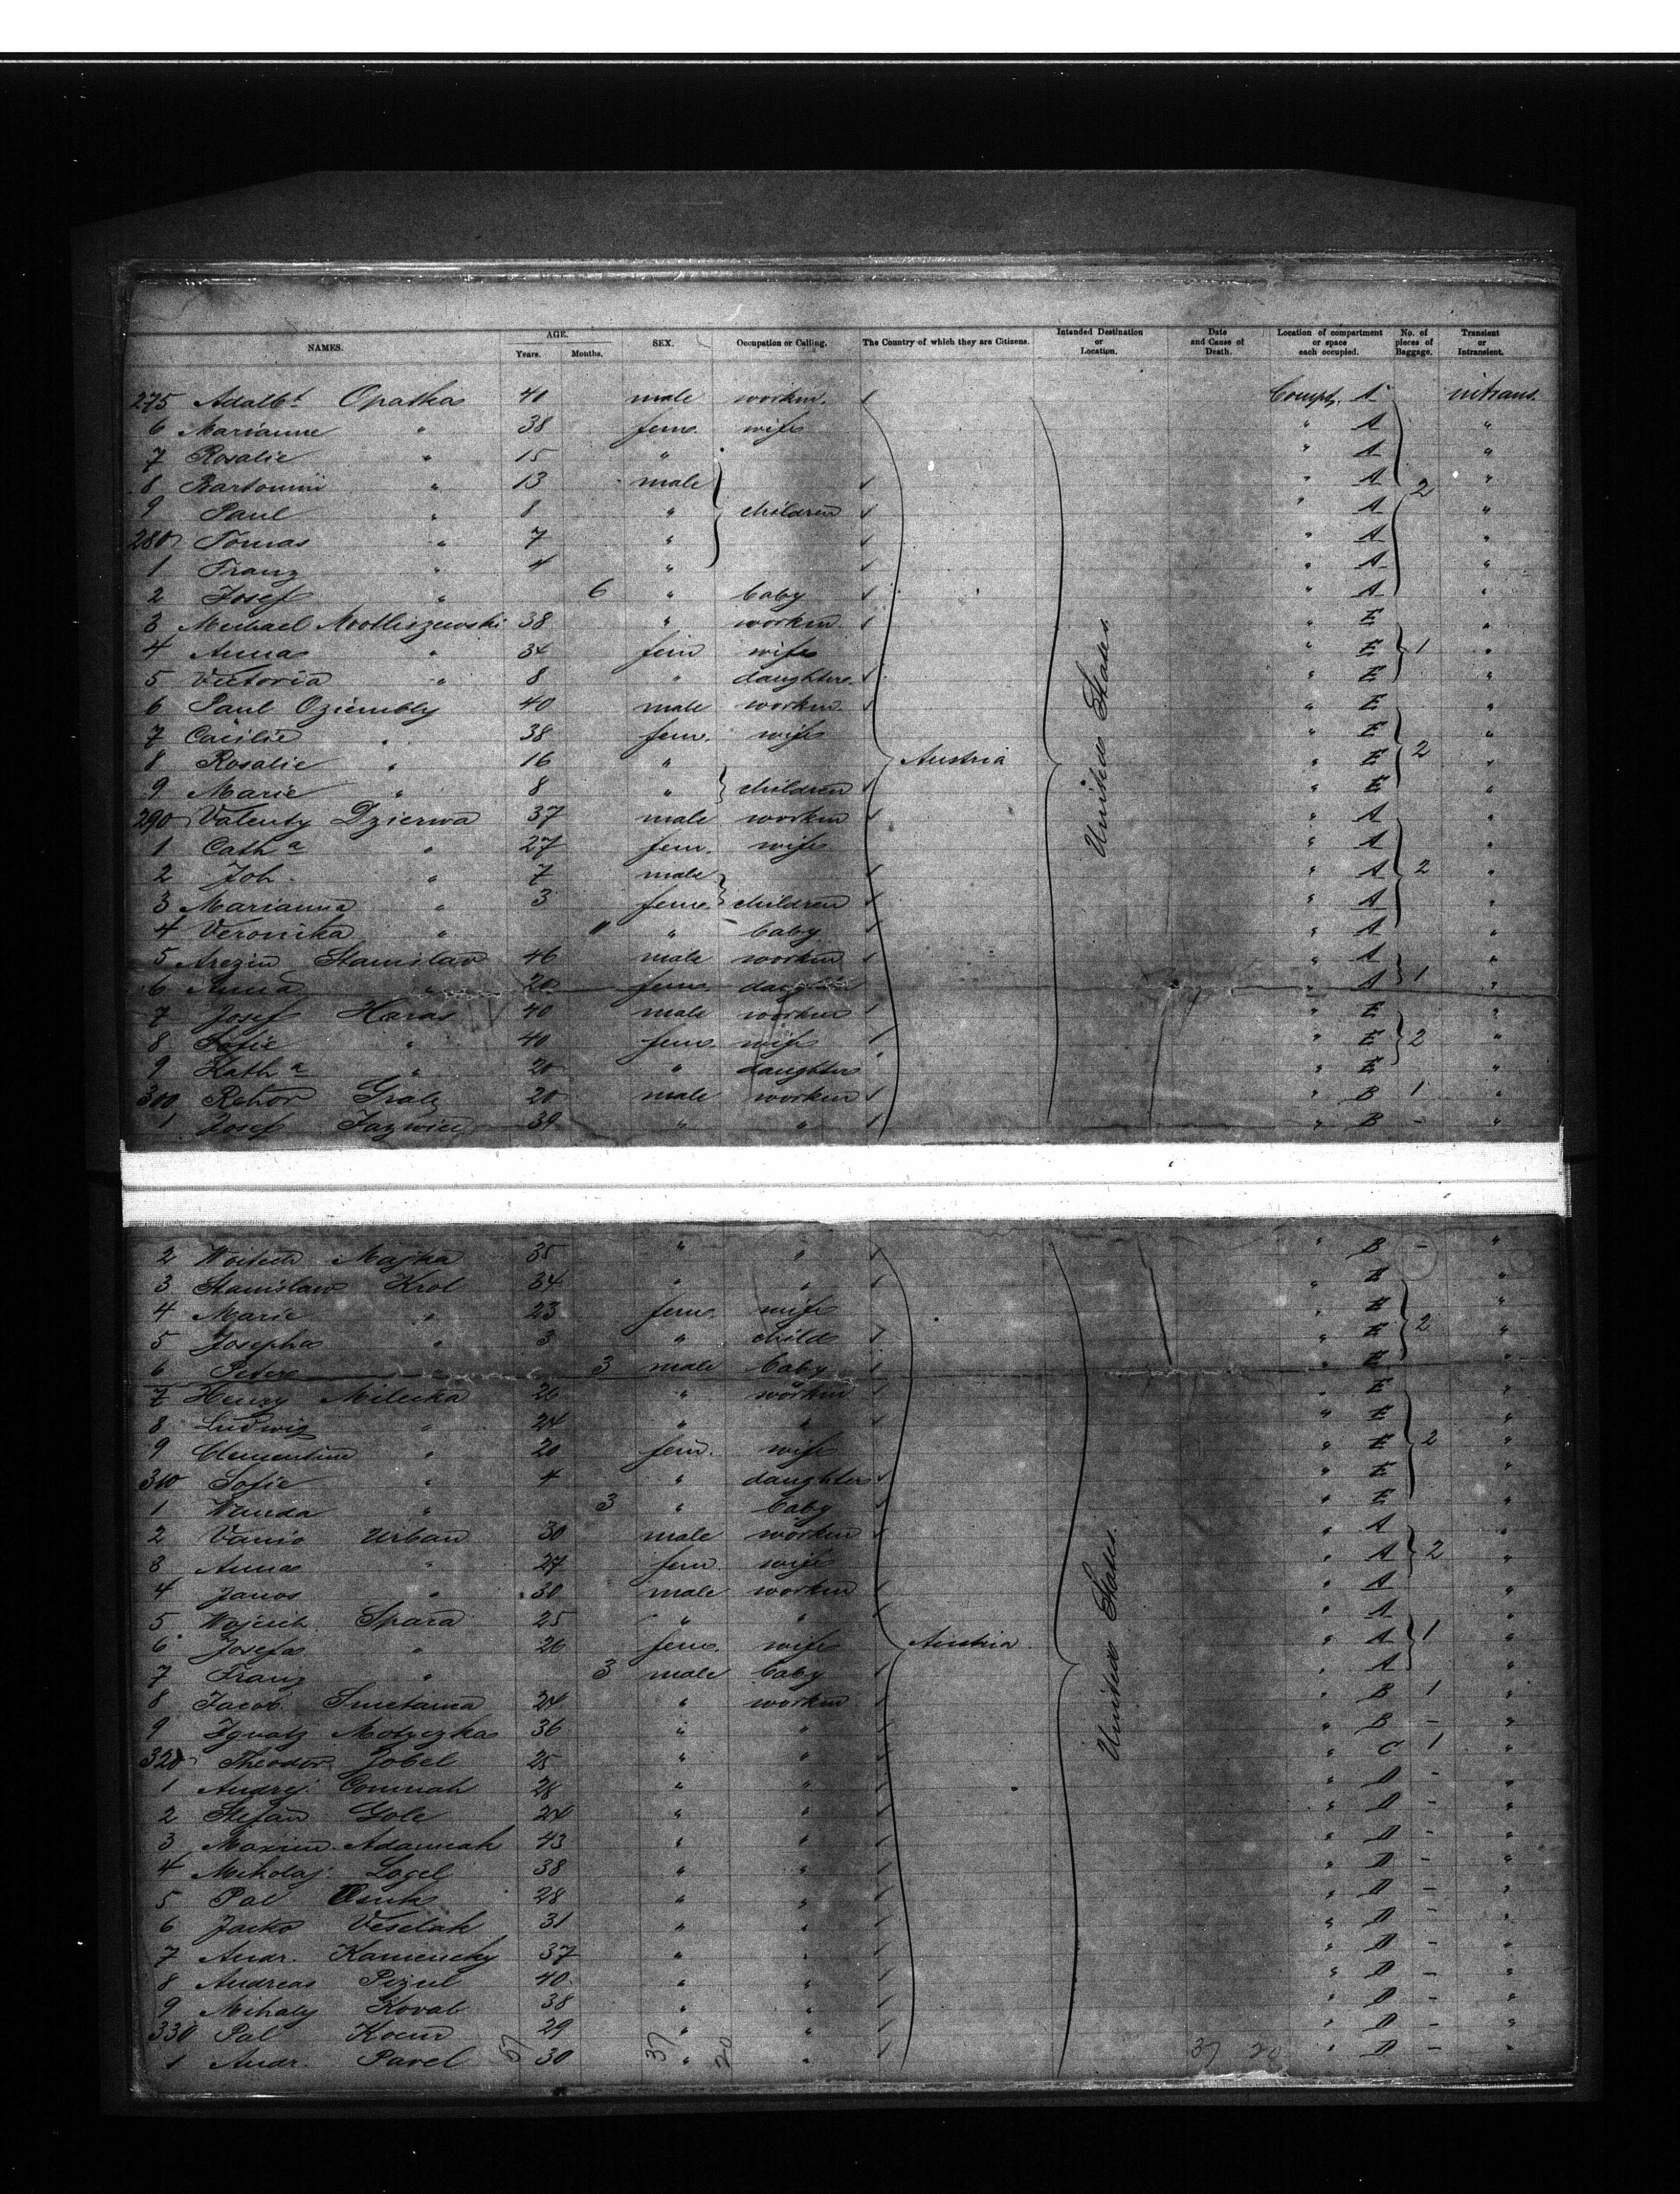 NAMES. AGE. Years. Months. SEX. Occupation or Calling. The Country of which they are Citizens. Intended Destination or Location. Date and Cause of Death. Location of compartment or space each occupied. No. of pieces of Baggage. Transient or Intransient.
275 Adalbt Opatka 40 male workm. Compt. A intrans.
6 Marianne " 38 fem. wife " A "
7 Rosalie " 15 " " A "
8 " 13 male " A "
9 Paul " 8 " children " A 2 "
280 Tomas " 7 " " A "
1 Franz " 4 " " A "
2 Josef " 6 " baby " A "
3 Michael 38 " workm. " E "
4 Anna " 34 fem wife " E 1 "
5 Victoria " 8 " daughter " E "
6 Paul Oziembly 40 male workm. " E "
7 Cäcilie " 38 fem. wife " E "
8 Rosalie " 16 " Austria United States. " E 2 "
9 Marie " 8 " children " E "
290 Valenty Dzierwa 37 male workm " A "
1 Catha " 27 fem. wife " A "
2 Joh. " 7 male " A 2 "
3 Marianna " 3 fem. children " A "
4 Veronika " " " baby " A "
5 Stanislav 46 male workm " A "
6 Anna " 20 fem. daughter " A 1 "
7 Josef Haras 40 male workm " E "
8 Sofie " 40 fem. wife " E 2 "
9 Katha " 20 " daughter " E "
300 Rehor 20 male workm " B 1 "
1 Josef 39 " " " B - "
2 Majka 35 " " " B - "
3 Stanislaw Krol 34 " " " E "
4 Marie " 23 fem. wife " E "
5 Josepha " 3 " child " E 2 "
6 Peter " 3 male baby " E "
7 Henry Milecka 26 " workm " E "
8 Ludwig " 24 " " " E "
9 Clementine " 20 fem. wife " E 2 "
310 Sofie " 4 " daughter " E "
1 Wanda " 3 " baby " E "
2 Urban 30 male workm " A "
3 Anna " 27 fem. wife " A 2 "
4 Janos " 30 male workm " A "
5 Spara 25 " " " A "
6 Josefa " 26 fem. wife Austria. United States. " A 1 "
7 Franz " 3 male baby " A "
8 Jacob Smetana 24 " workm " B 1 "
9 Ignatz Motyczka 36 " " " B - "
320 Theodor Zobel 25 " " " C 1 "
1 Andrej 28 " " " D - "
2 Stefan Gole 24 " " " D - "
3 Maxim Adamcak 43 " " " D - "
4 Mikolaj Logel 38 " " " D - "
5 Pal 28 " " " D - "
6 Jacko Veselak 31 " " " D - "
7 Andr. Kamensky 37 " " " D - "
8 Andreas 40 " " " D - "
9 Mihaly Koval 38 " " " D - "
330 Pal 29 " " " D - "
1 Andr. Pavel 30 " " " D - "
37 20 37 20